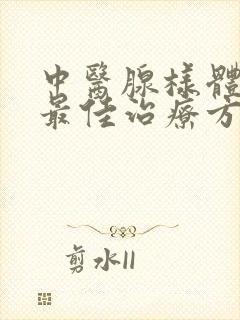 中醫腺樣體
最佳治療方
剪水II